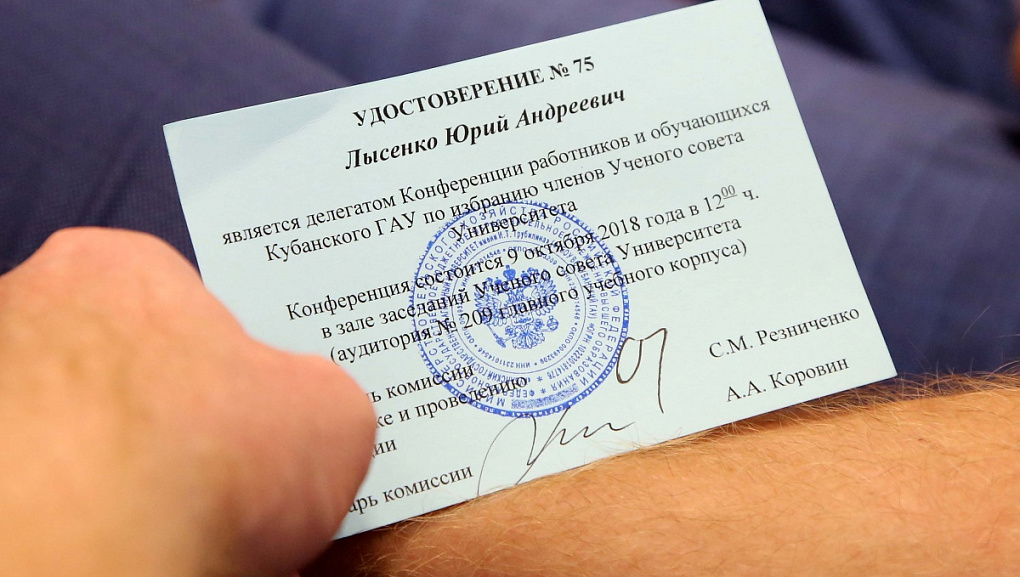 УДОСТОВЕРЕНИЕ № 75
Лысенко Юрий Андреевич
является делегатом Конференции работников и обучающихся
Кубанского ГАУ по избранию членов Ученого совета
Университета
Конференция состоится 9 октября 2018 года в 12⁰⁰ ч.
в зале заседаний Ученого совета Университета
(аудитория № 209 главного учебного корпуса)
ь комиссии
ке и проведению
ции
С.М. Резниченко
арь комиссии
А.А. Коровин